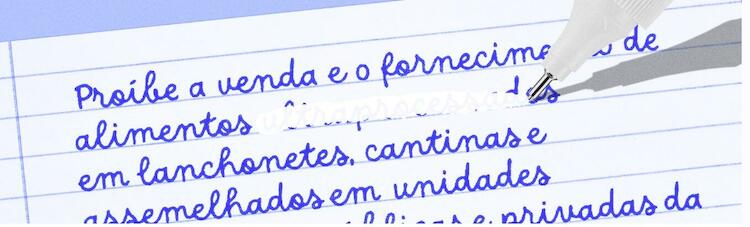 Proíbe a venda e o fornecimento de
alimentos ultraprocessados
em lanchonetes, cantinas e
assemelhados em unidades
públicas e privadas da